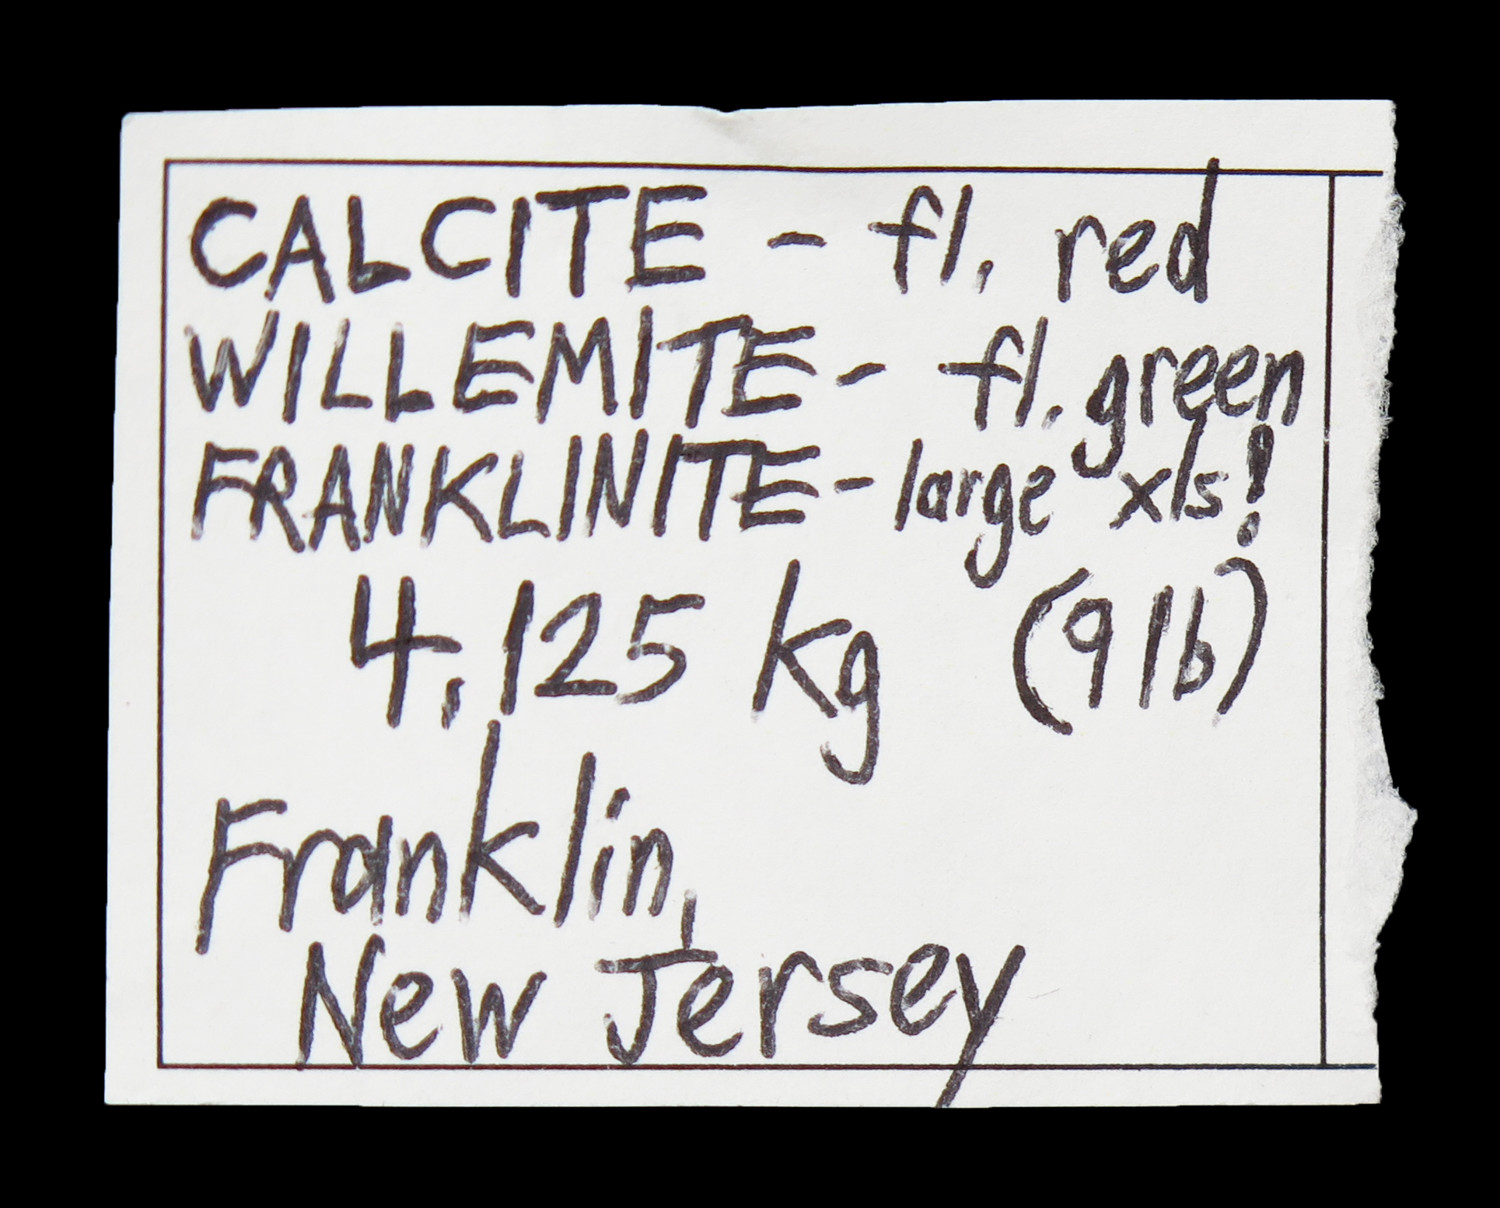 CALCITE - fl. red
WILLEMITE - fl. green
FRANKLINITE - large xls!
4,125 kg (9 lb)
Franklin,
New Jersey